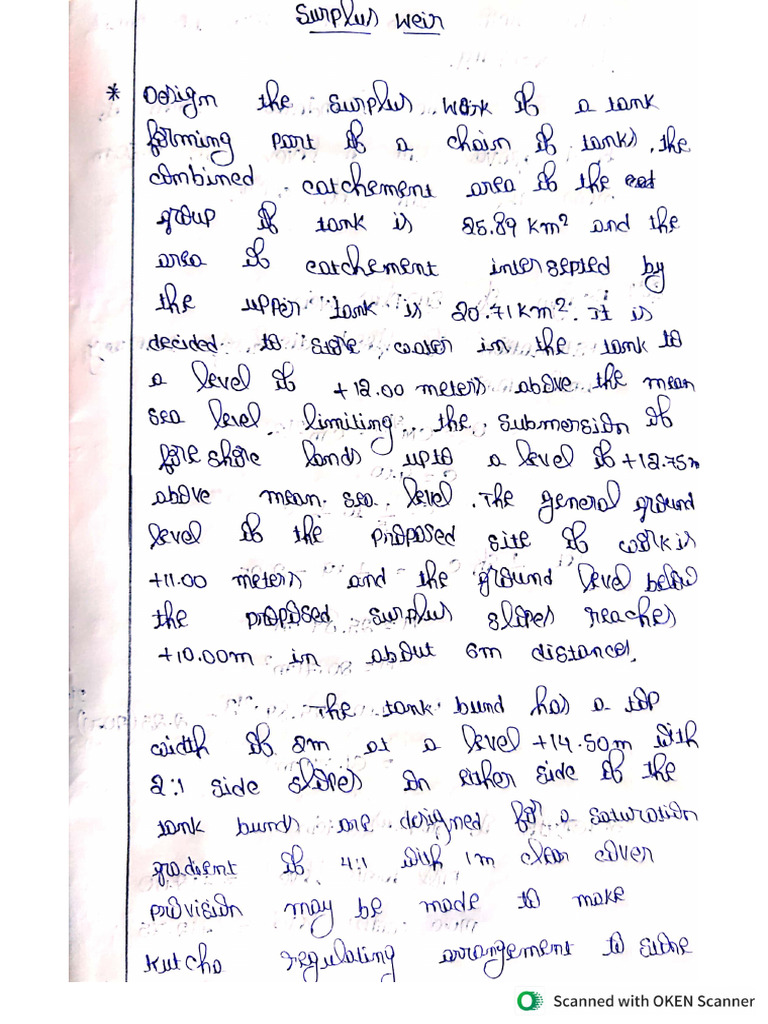 Surplus weir
* Design the surplus work of a tank
forming part of a chain of tanks, the
combined catchement area of the cat
group of tank is 25.89 km² and the
area of catchement intersepted by
the upper tank is 20.71 km². It is
decided to store water in the tank to
a level of +12.00 meters above the mean
sea level limiting the submersion of
fore shore lands upto a level of +12.75m
above mean sea level. The general ground
level of the proposed site of work is
+11.00 meters and the ground level below
the proposed surplus slopes reaches
+10.00m in about 6m distances.
The tank bund has a top
width of 2m at a level +14.50m with
2:1 side slopes on either side of the
tank bunds are designed for a saturation
gradient of 4:1 with 1m clear cover
provision may be made to make
kutcha regulating arrangement to store
Scanned with OKEN Scanner